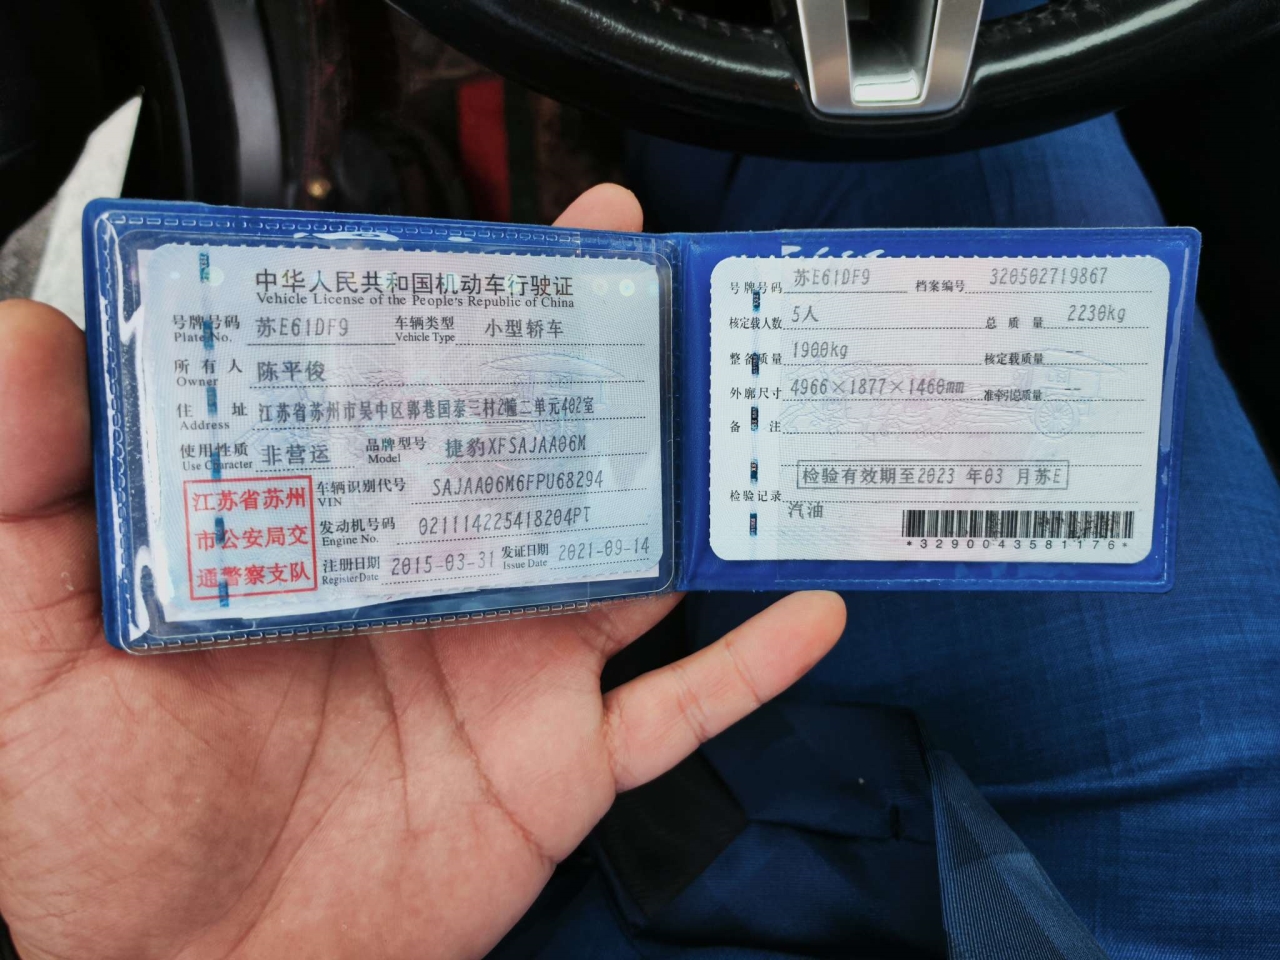 中华人民共和国机动车行驶证
Vehicle License of the People's Republic of China
号牌号码 苏E61DF9 车辆类型 小型轿车
Plate No. Vehicle Type
所有人 陈平俊
Owner
住址 江苏省苏州市吴中区郭巷国泰三村2幢二单元402室
Address
使用性质 非营运 品牌型号 捷豹XFSAJAA06M
Use Character Model
江苏省苏州
市公安局交
通警察支队
车辆识别代号 SAJAA06M6FPU68294
VIN
发动机号码 021114225418204PT
Engine No.
注册日期 2015-03-31 发证日期 2021-09-14
Register Date Issue Date
号牌号码 苏E61DF9 档案编号 320502719867
核定载人数 5人 总质量 2230kg
整备质量 1900kg 核定载质量
外廓尺寸 4966×1877×1460mm 准牵引总质量 --
备注
检验有效期至2023 年03 月苏E
检验记录
汽油
*3290043581176*